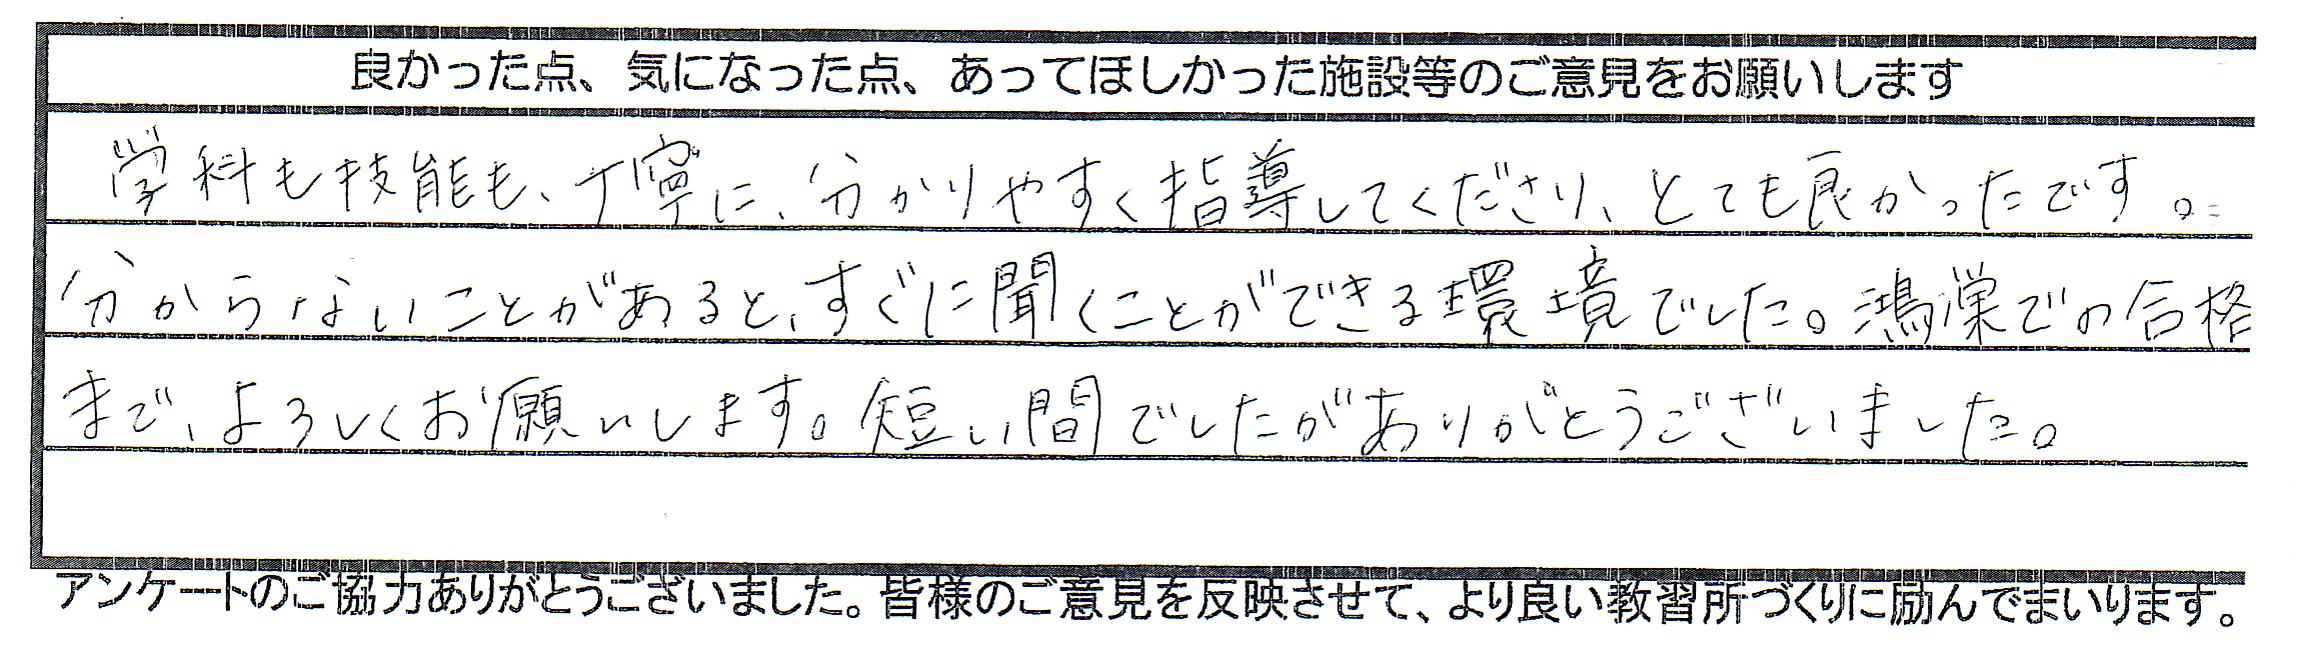 良かった点、気になった点、あってほしかった施設等のご意見をお願いします
学科も技能も、丁寧に、分かりやすく指導してくださり、とても良かったです。
分からないことがあると、すぐに聞くことができる環境でした。鴻巣での合格
まで、よろしくお願いします。短い間でしたがありがとうございました。
アンケートのご協力ありがとうございました。皆様のご意見を反映させて、より良い教習所づくりに励んでまいります。